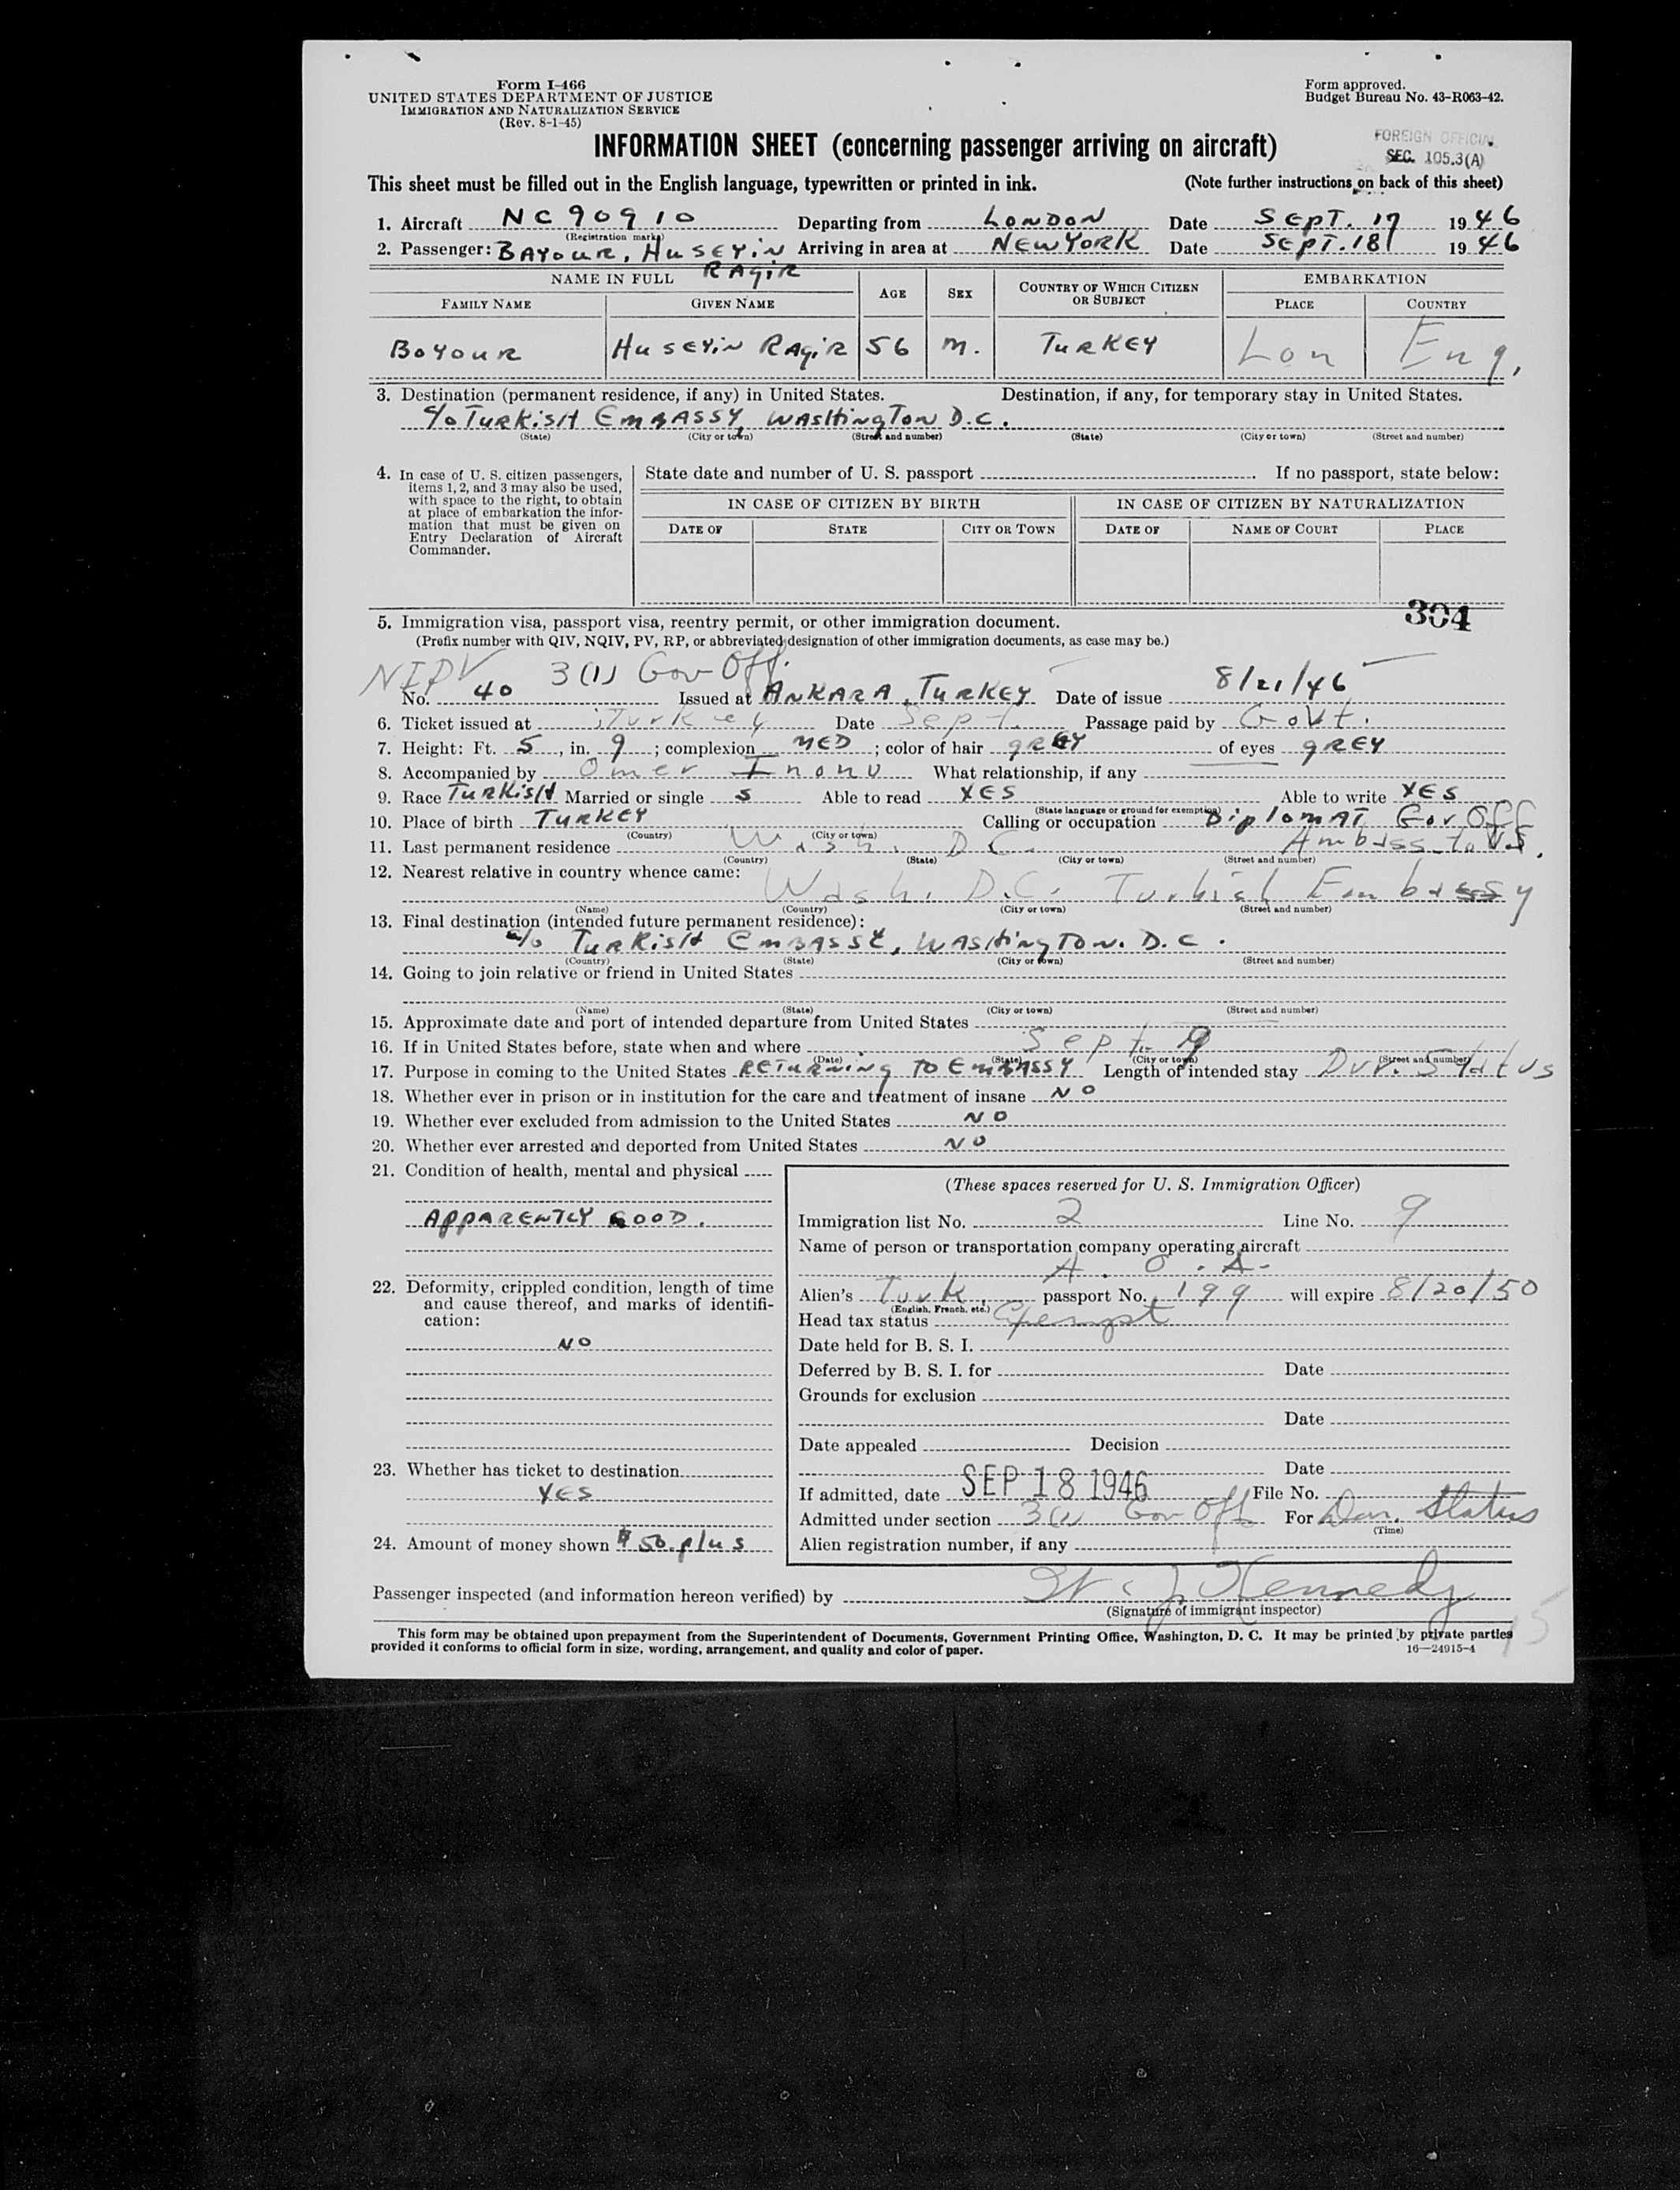 Form I-466
UNITED STATES DEPARTMENT OF JUSTICE
IMMIGRATION AND NATURALIZATION SERVICE
(Rev. 8-1-45)
Form approved.
Budget Bureau No. 43-R063-42.
INFORMATION SHEET (concerning passenger arriving on aircraft)
FOREIGN OFFICIAL
SEC. 105.3(A)
This sheet must be filled out in the English language, typewritten or printed in ink. (Note further instructions on back of this sheet)
1. Aircraft NC90910 Departing from LONDON Date SEPT. 17 1946
(Registration marks)
2. Passenger: BAYOUR, HUSEYIN Arriving in area at NEW YORK Date SEPT. 18 1946
RAGIR
NAME IN FULL AGE SEX COUNTRY OF WHICH CITIZEN OR SUBJECT EMBARKATION
FAMILY NAME GIVEN NAME PLACE COUNTRY
BOYOUR HUSEYIN RAGIR 56 M. TURKEY Lon Eng.
3. Destination (permanent residence, if any) in United States. Destination, if any, for temporary stay in United States.
c/o TURKISH EMBASSY, WASHINGTON D.C.
(State) (City or town) (Street and number) (State) (City or town) (Street and number)
4. In case of U. S. citizen passengers, items 1, 2, and 3 may also be used, with space to the right, to obtain at place of embarkation the information that must be given on Entry Declaration of Aircraft Commander.
State date and number of U. S. passport If no passport, state below:
IN CASE OF CITIZEN BY BIRTH IN CASE OF CITIZEN BY NATURALIZATION
DATE OF STATE CITY OR TOWN DATE OF NAME OF COURT PLACE
304
5. Immigration visa, passport visa, reentry permit, or other immigration document.
(Prefix number with QIV, NQIV, PV, RP, or abbreviated designation of other immigration documents, as case may be.)
NIPV 3(1) Gov Off.
No. 40 Issued at ANKARA, TURKEY Date of issue 8/21/46
6. Ticket issued at Turkey Date Sept. Passage paid by Govt.
7. Height: Ft. 5, in. 9; complexion MED; color of hair GREY of eyes GREY
8. Accompanied by Omer Inonu What relationship, if any
9. Race TURKISH Married or single S Able to read YES Able to write YES
(State language or ground for exemption)
10. Place of birth TURKEY Calling or occupation DIPLOMAT Gov Off
(Country) (City or town)
11. Last permanent residence Wash. D.C.
(Country) (State) (City or town) (Street and number)
12. Nearest relative in country whence came: Wash. D.C. Turkish Embassy
(Name) (Country) (City or town) (Street and number)
13. Final destination (intended future permanent residence):
c/o TURKISH EMBASSY, WASHINGTON. D.C.
(Country) (State) (City or town) (Street and number)
14. Going to join relative or friend in United States
(Name) (State) (City or town) (Street and number)
15. Approximate date and port of intended departure from United States
16. If in United States before, state when and where Sept.
(Date) (State) (City or town) (Street and number)
17. Purpose in coming to the United States RETURNING TO EMBASSY Length of intended stay Dur. Status
18. Whether ever in prison or in institution for the care and treatment of insane NO
19. Whether ever excluded from admission to the United States NO
20. Whether ever arrested and deported from United States NO
21. Condition of health, mental and physical
APPARENTLY GOOD.
22. Deformity, crippled condition, length of time and cause thereof, and marks of identification:
NO
23. Whether has ticket to destination
YES
24. Amount of money shown $50. plus
(These spaces reserved for U. S. Immigration Officer)
Immigration list No. 2 Line No. 9
Name of person or transportation company operating aircraft
A. O. A.
Alien's Turk. passport No. 199 will expire 8/20/50
(English, French, etc.)
Head tax status Exempt
Date held for B. S. I.
Deferred by B. S. I. for Date
Grounds for exclusion
Date
Date appealed Decision
Date
If admitted, date SEP 18 1946 File No.
Admitted under section 3(1) Gov Off For Dur. Status
(Time)
Alien registration number, if any
Passenger inspected (and information hereon verified) by Kennedy
(Signature of immigrant inspector)
This form may be obtained upon prepayment from the Superintendent of Documents, Government Printing Office, Washington, D. C. It may be printed by private parties
provided it conforms to official form in size, wording, arrangement, and quality and color of paper.
16—24915-4